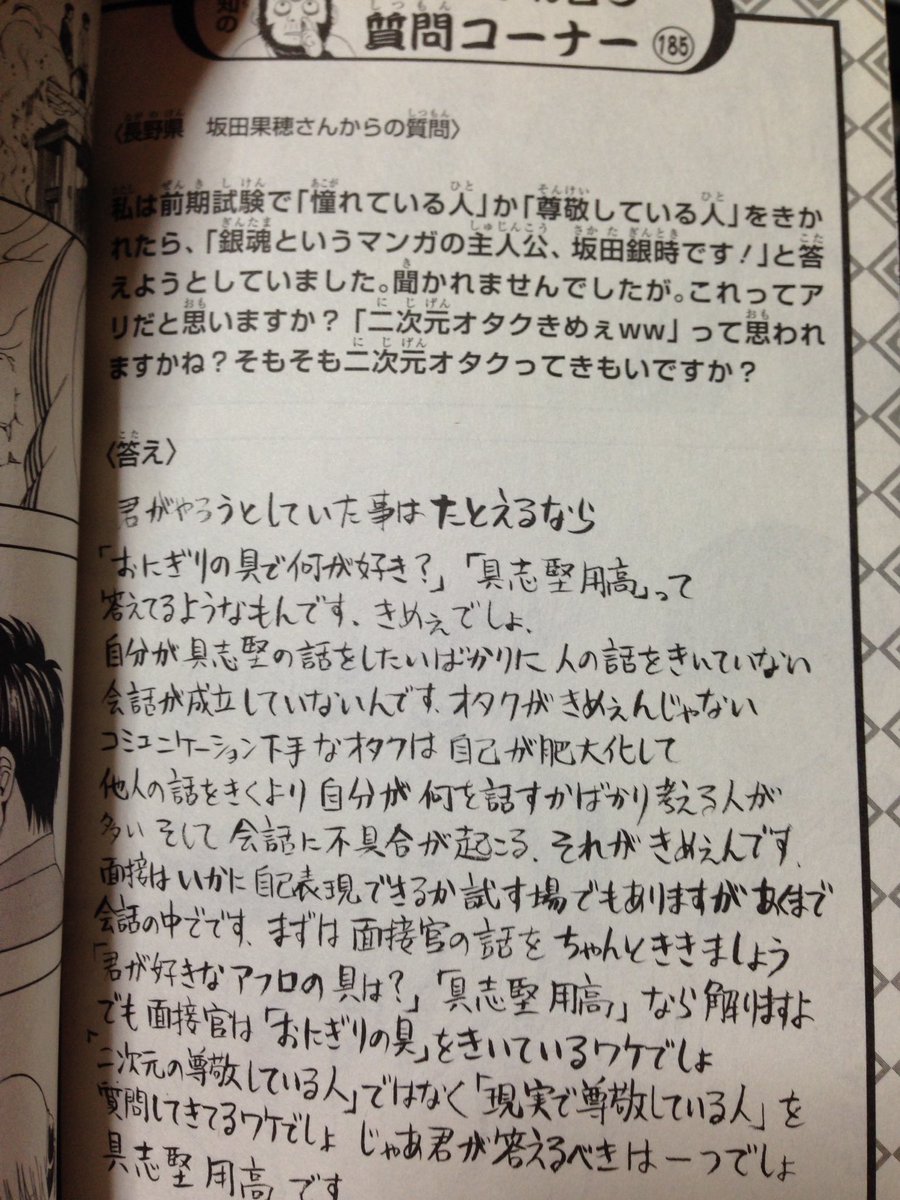 知の
質問コーナー 185
〈長野県 坂田果穂さんからの質問〉
私は前期試験で「憧れている人」か「尊敬している人」をきか
れたら、「銀魂というマンガの主人公、坂田銀時です!」と答
えようとしていました。聞かれませんでしたが。これってア
リだと思いますか?「二次元オタクきめぇww」って思われ
ますかね?そもそも二次元オタクってきもいですか?
〈答え〉
君がやろうとしていた事はたとえるなら
「おにぎりの具で何が好き?」「具志堅用高」って
答えてるようなもんです、きめぇでしょ、
自分が具志堅の話をしたいばかりに人の話をきいていない
会話が成立していないんです、オタクがきめぇんじゃない
コミュニケーション下手なオタクは自己が肥大化して
他人の話をきくより自分が何を話すかばかり考える人が
多い そして会話に不具合が起こる、それがきめぇんです、
面接はいかに自己表現できるか試す場でもありますがあくまで
会話の中でです、まずは面接官の話をちゃんとききましょう
「君が好きなアフロの具は?」「具志堅用高」なら解りますよ
でも面接官は「おにぎりの具」をきいているワケでしょ
「二次元の尊敬している人」ではなく「現実で尊敬している人」を
質問してきてるワケでしょ じゃあ君が答えるべきは一つでしょ
具志堅用高です